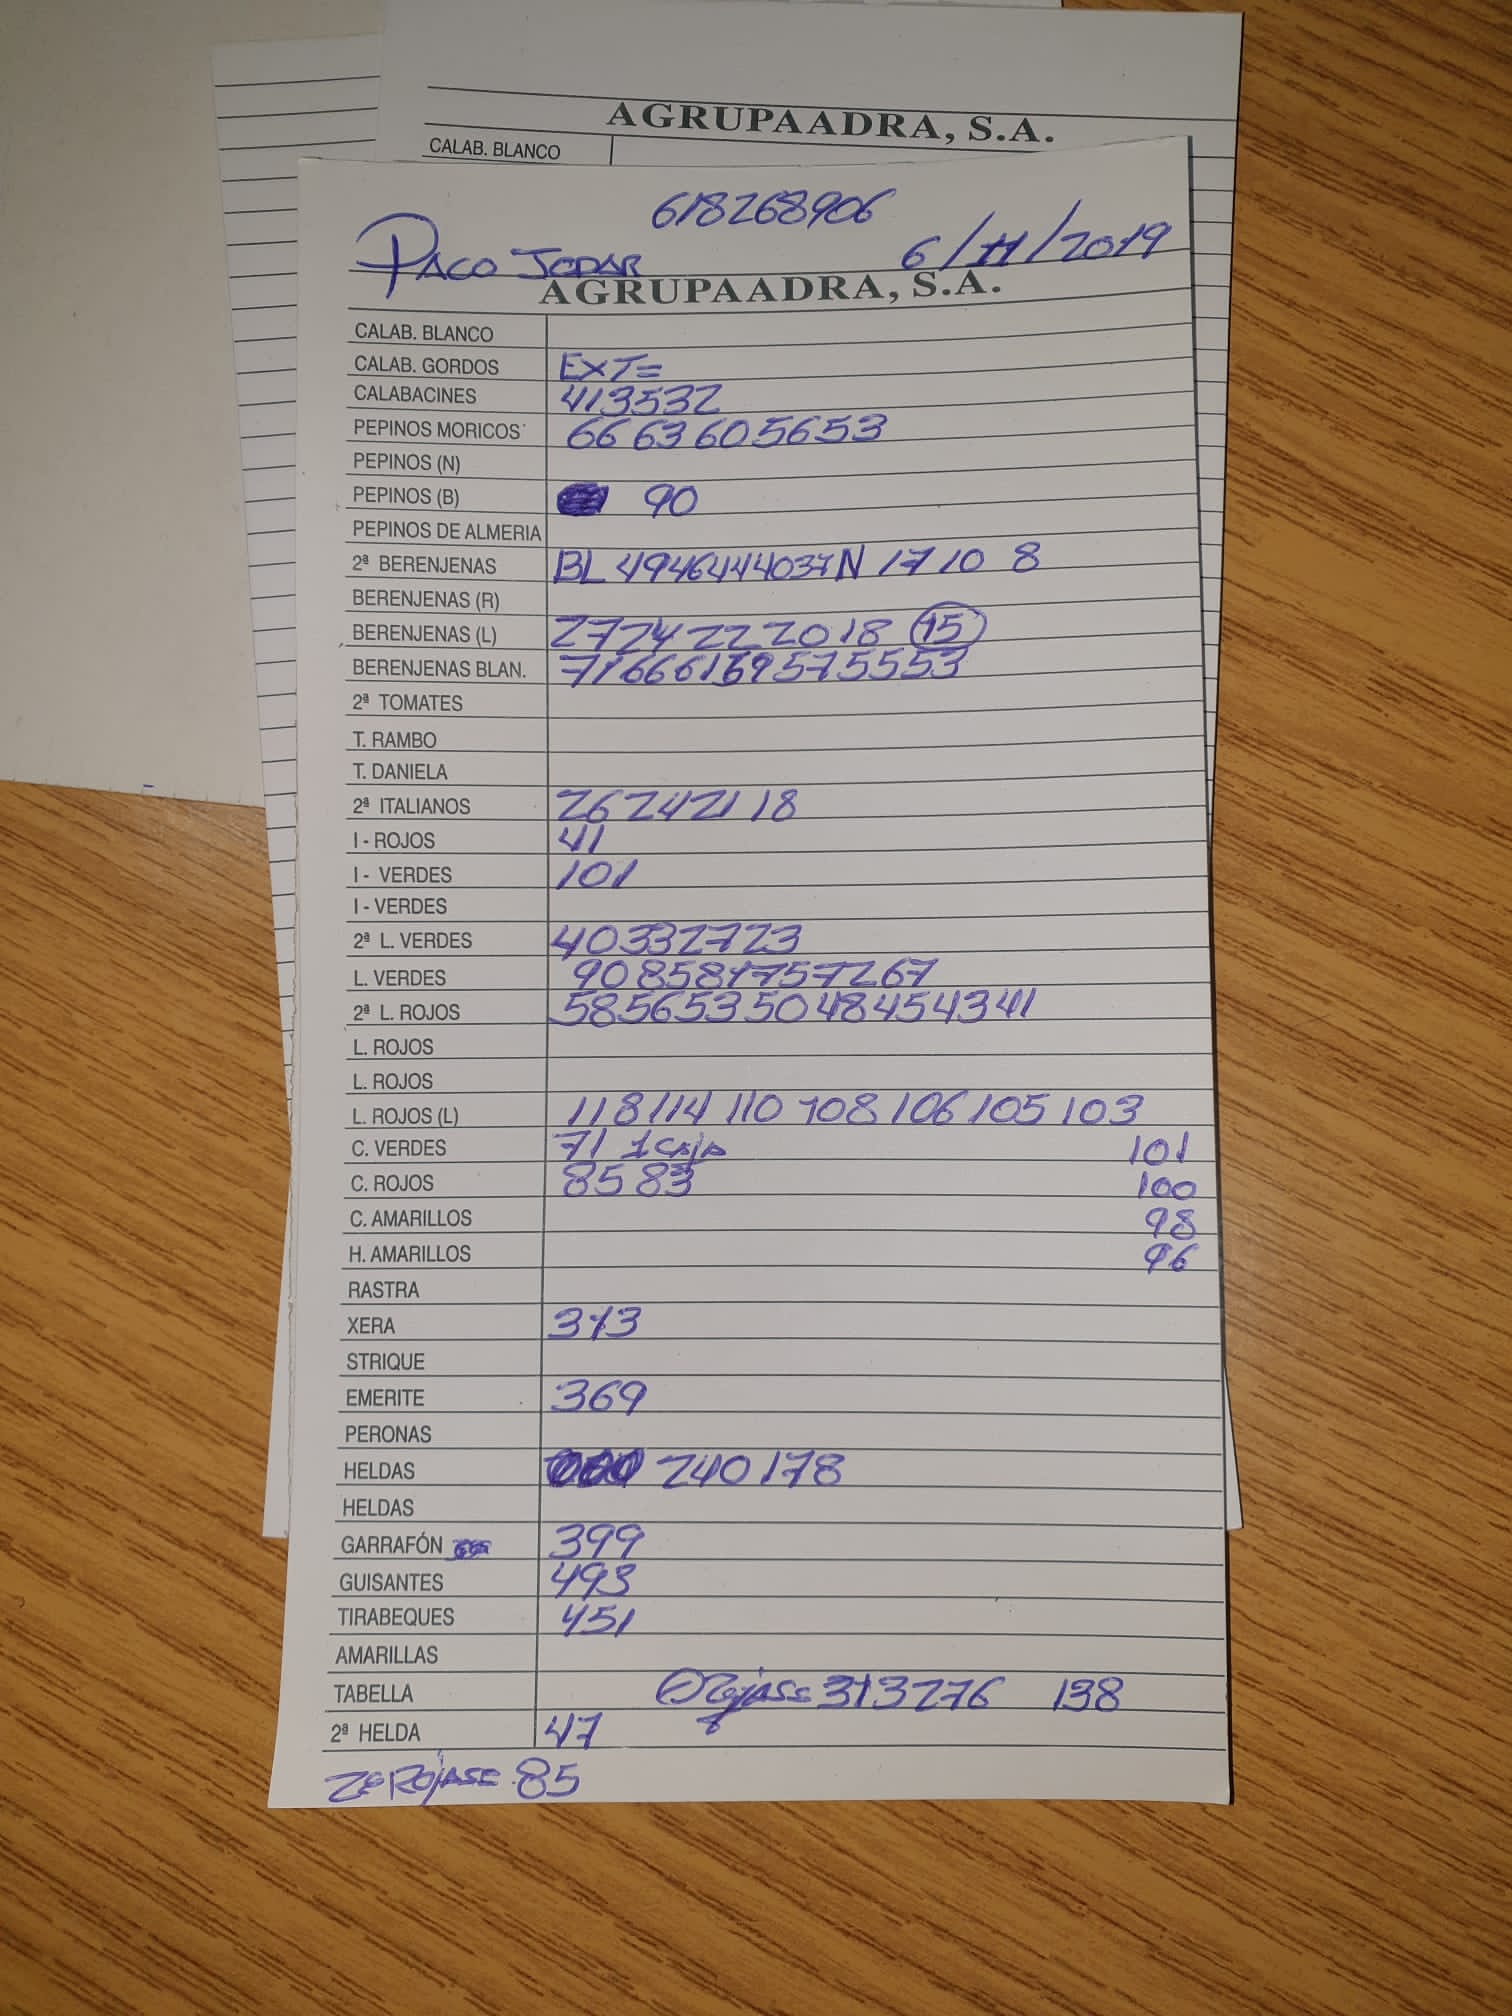 AGRUPAADRA, S.A.
CALAB. BLANCO
618268906
PACO JODAR 6/11/2019
AGRUPAADRA, S.A.
CALAB. BLANCO
CALAB. GORDOS EXT=
CALABACINES 413532
PEPINOS MORICOS 66 63 60 5653
PEPINOS (N)
PEPINOS (B) 90
PEPINOS DE ALMERIA
2ª BERENJENAS BL 4946444037N 17 10 8
BERENJENAS (R)
BERENJENAS (L) 2724 22 20 18 15
BERENJENAS BLAN. 71666159575553
2ª TOMATES
T. RAMBO
T. DANIELA
2ª ITALIANOS 26 242118
I - ROJOS 41
I - VERDES 101
I - VERDES
2ª L. VERDES 40332723
L. VERDES 908581757267
2ª L. ROJOS 5856535048454341
L. ROJOS
L. ROJOS
L. ROJOS (L) 118 114 110 108 106 105 103
C. VERDES 71 1 caja 101
C. ROJOS 85 83 100
C. AMARILLOS 98
H. AMARILLOS 96
RASTRA
XERA 313
STRIQUE
EMERITE 369
PERONAS
HELDAS 240 178
HELDAS
GARRAFÓN 399
GUISANTES 493
TIRABEQUES 451
AMARILLAS
TABELLA 313276 138
2ª HELDA 47
ROJASE 85